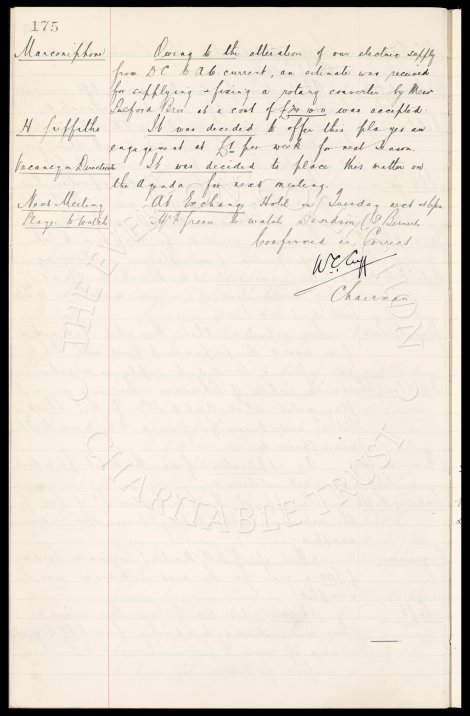 175
Marconiphone Owing to the alteration of our electric supply
from D.C. to A.C. current, an estimate was received
for supplying & fixing a rotary converter by Messrs
Bros at a cost of £ was accepted.
H Griffiths It was decided to offer this player an
engagement at £1 per week for next season.
Vacancy in Directorate It was decided to place this matter on
the Agenda for next meeting.
Next Meeting At Exchange Hotel on Tuesday next at 6pm
Player to Watch Mr Green to watch Davidson
Confirmed as Correct
W.C. Cuff
Chairman
THE EVE
CHARITABLE TRUST